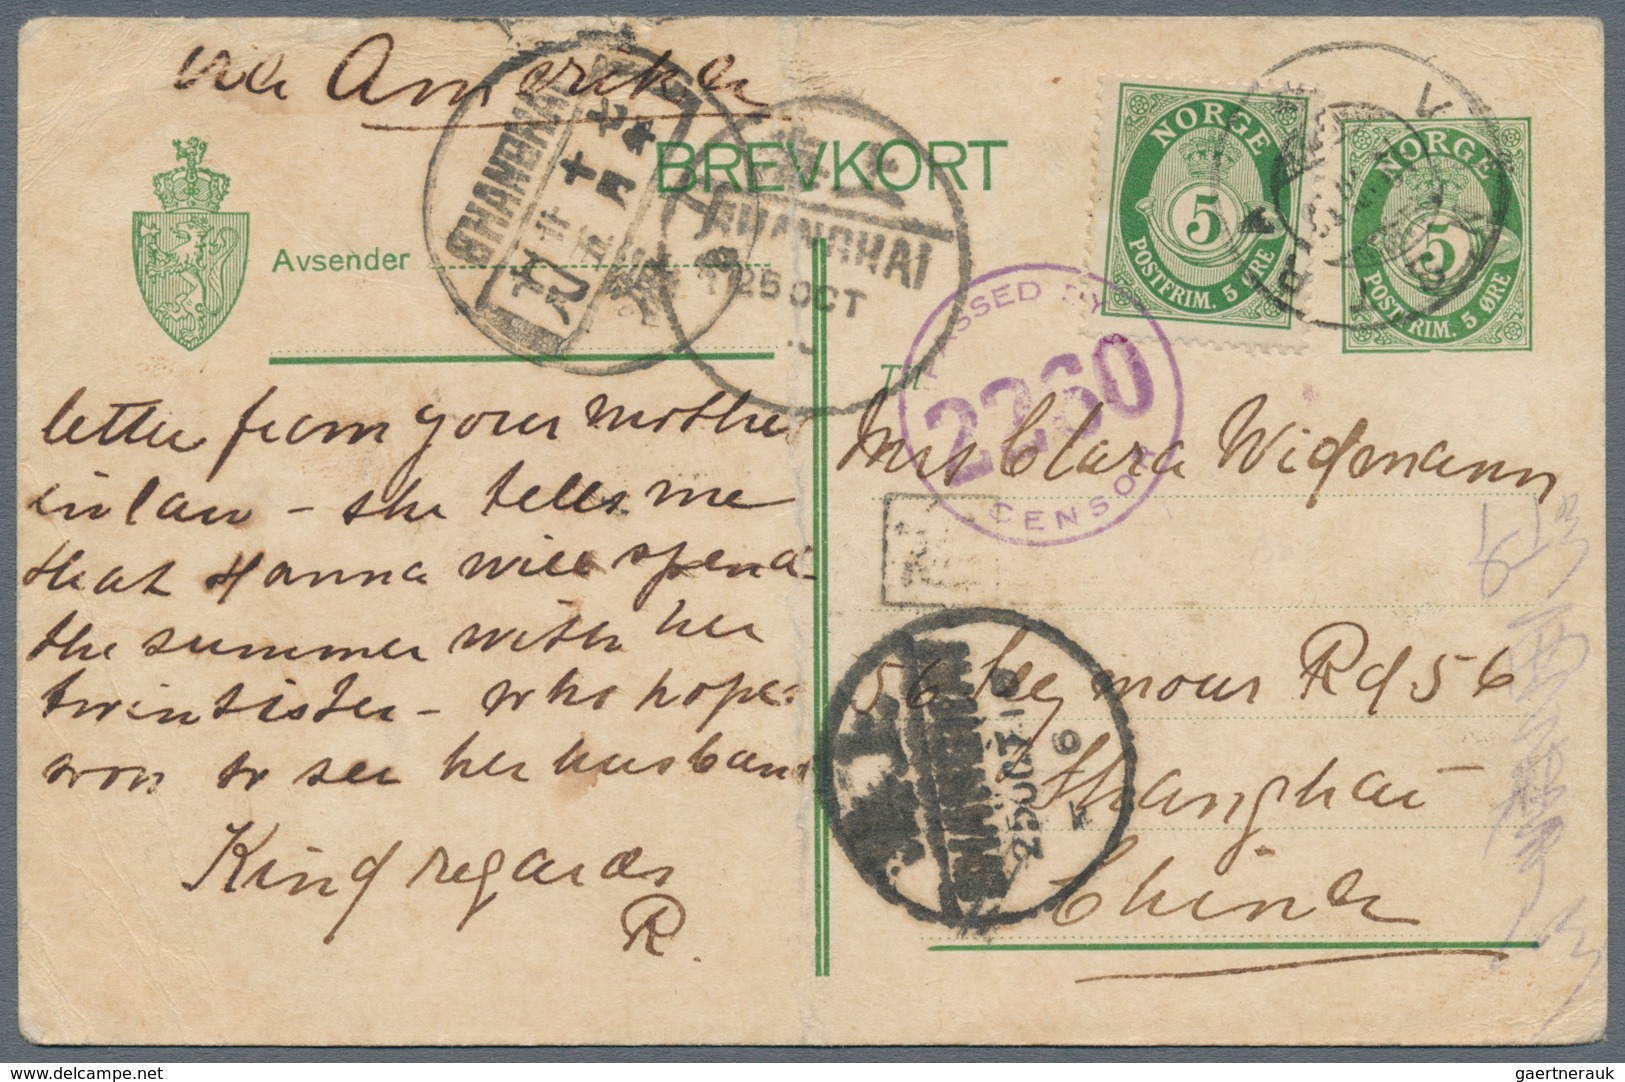 via Amerika
BREVKORT
Avsender
NORGE
5
POSTFRIM. 5 ØRE
NORGE
5
POSTFRIM. 5 ØRE
SHANGHAI
SHANGHAI
25 OCT
PASSED BY
2260
CENSOR
Til
letter from your mother
in law - she tells me
that Hanna will spend
the summer with her
twinsister - who hopes
soon to see her husband
Kind regards
R.
Mrs Clara Widmann
56 Seymour Rd 56
Shanghai
China
25 OCT
gaertnerauk
delcampe.net